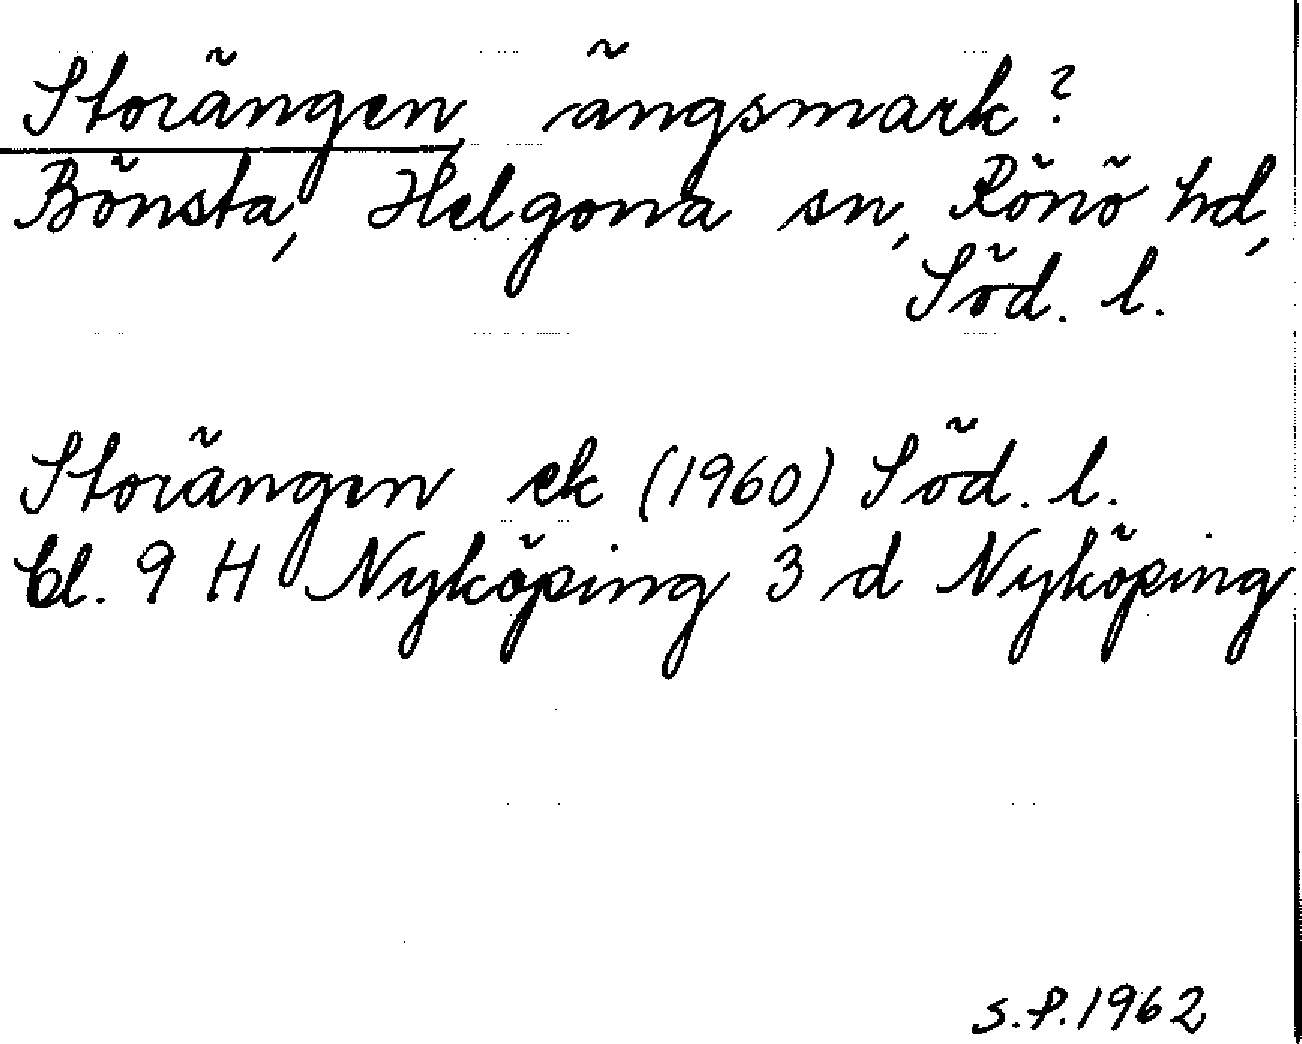 Storängen, ängsmark?
Bönsta, Helgona sn, Rönö hd,
Söd. l.
Storängen ek (1960) Söd. l.
bl. 9 H Nyköping 3 d Nyköping
S.P. 1962